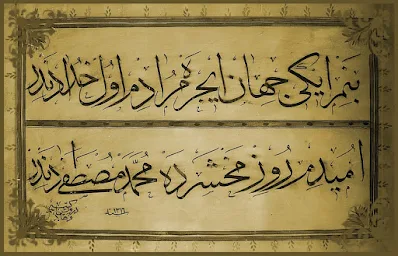 بنم ایکی جهان ایجره مرادم اول خدادندر
امیدم روز محشرده محمد مصطفادندر